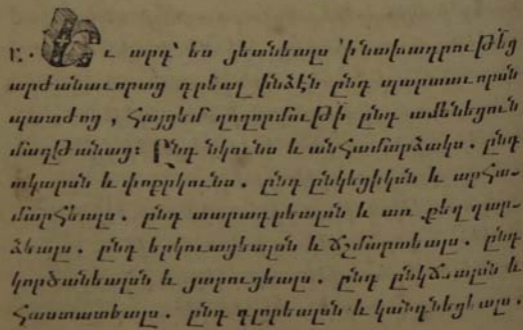 բ. Եւ արդ՝ ես յետնեալս ՚ի նախադրութեց
արժանաւորաց գրեալ ինձէն ընդ պարտաւորսն
պատժոց, հայցեմ զողորմութի ընդ ամենեցուն
մաղթանաց: Ընդ նկունսն և անհամարձակս. ընդ
տկարսն և փոքրկունս. ընդ ընկեցիկսն և արհա-
մարհեալս. ընդ տարագրեալսն և առ քեզ դար-
ձեալս. ընդ երկուացեալսն և ճշմարտեալս. ընդ
կործանեալսն և յարուցեալս. ընդ ընկճեալսն և
հաստատեալս. ընդ գլորեալսն և կանգնեցեալս.